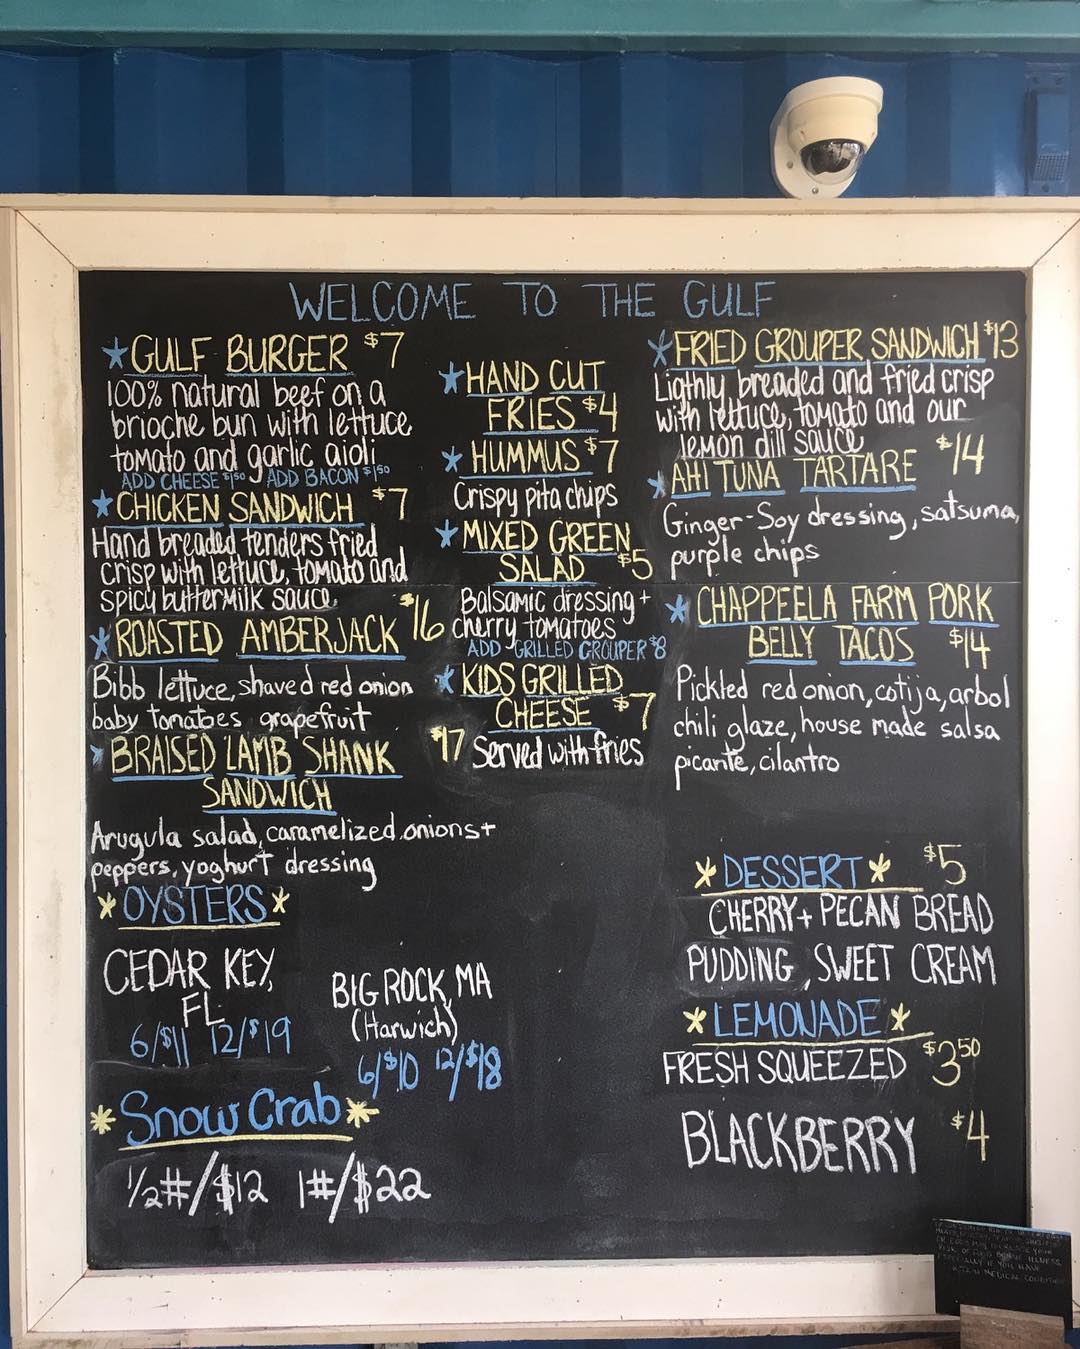 WELCOME TO THE GULF
*GULF BURGER $7
100% natural beef on a
brioche bun with lettuce
tomato and garlic aioli
ADD CHEESE $1.50 ADD BACON $1.50
*CHICKEN SANDWICH $7
Hand breaded tenders fried
crisp with lettuce, tomato and
spicy buttermilk sauce
*ROASTED AMBERJACK $16
Bibb lettuce, shaved red onion
baby tomatoes grapefruit
*BRAISED LAMB SHANK $17
SANDWICH
Arugula salad, caramelized onions +
peppers, yoghurt dressing
*OYSTERS*
CEDAR KEY,
FL
6/$11 12/$19
BIG ROCK, MA
(Harwich)
6/$10 12/$18
*Snow Crab*
1/2#/$12 1#/$22
*HAND CUT
FRIES $4
*HUMMUS $7
Crispy pita chips
*MIXED GREEN
SALAD $5
Balsamic dressing +
cherry tomatoes
ADD GRILLED GROUPER $8
*KIDS GRILLED
CHEESE $7
Served with fries
*FRIED GROUPER SANDWICH $13
Ligthly breaded and fried crisp
with lettuce, tomato and our
lemon dill sauce
*AHI TUNA TARTARE $14
Ginger-Soy dressing, satsuma,
purple chips
*CHAPPEELA FARM PORK
BELLY TACOS $14
Pickled red onion, cotija, arbol
chili glaze, house made salsa
picante, cilantro
*DESSERT* $5
CHERRY + PECAN BREAD
PUDDING, SWEET CREAM
*LEMONADE*
FRESH SQUEEZED $3.50
BLACKBERRY $4
RISK OF FOOD BORNE ILLNESS
IF YOU HAVE
MEDICAL CONDITION